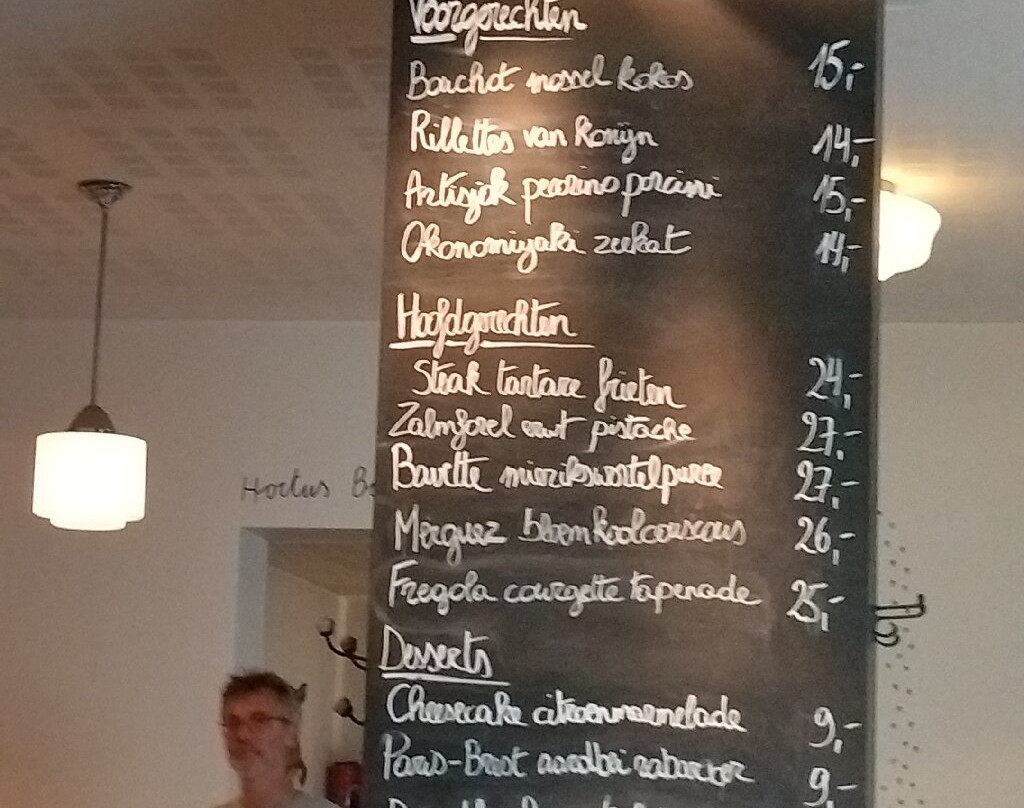 Voorgerechten
Bouchot mossel kokos 15,-
Rillettes van Konijn 14,-
Artisjok pecorino porcini 15,-
Okonomiyaki zeekat 14,-
Hoofdgerechten
Steak tartare frieten 24,-
Zalmforel erwt pistache 27,-
Bavette mierikswortelpuree 27,-
Hortus
Merguez bloemkoolcouscous 26,-
Fregola courgette tapenade 25,-
Desserts
Cheesecake citroenmarmelade 9,-
Paris-Brest aardbei rabarber 9,-